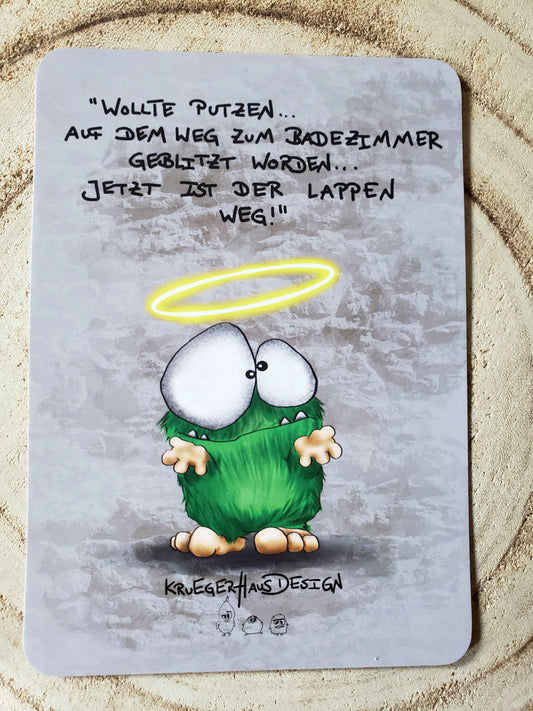 "WOLLTE PUTZEN...
AUF DEM WEG ZUM BADEZIMMER
GEBLITZT WORDEN...
JETZT IST DER LAPPEN
WEG!"
KRUEGERHAUSDESIGN